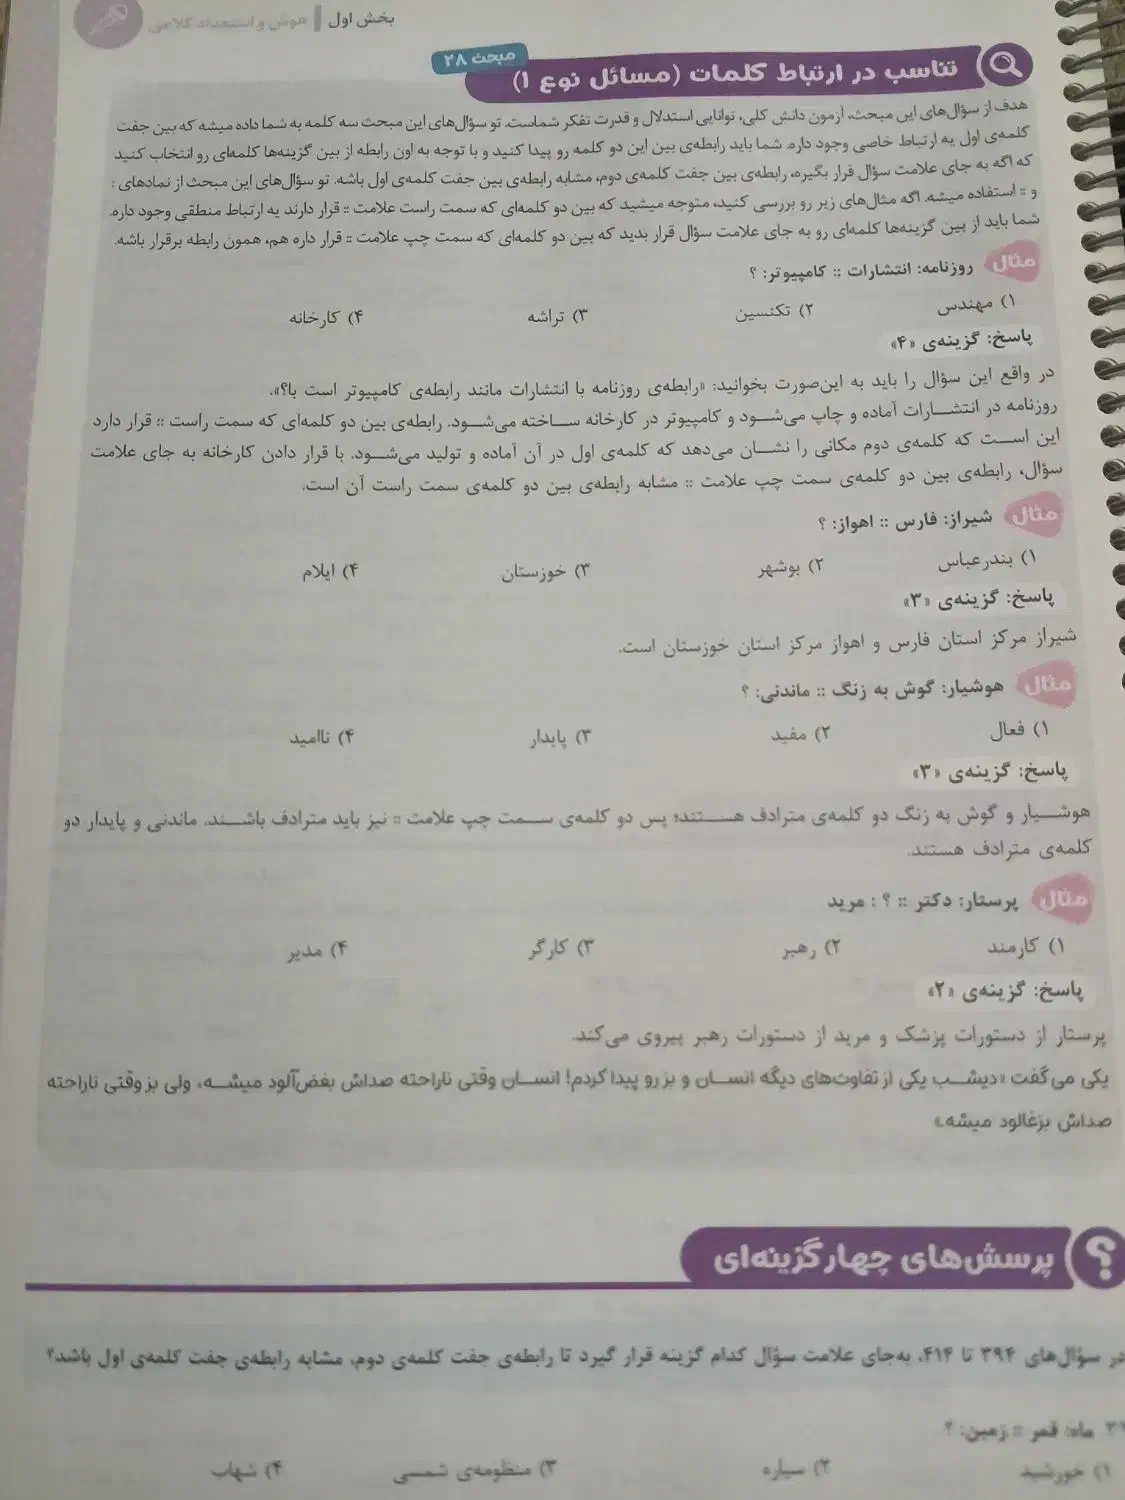 بخش اول | هوش و استعداد کلامی
مبحث ۲۸
تناسب در ارتباط کلمات (مسائل نوع ۱)
هدف از سؤال‌های این مبحث، آزمون دانش کلی، توانایی استدلال و قدرت تفکر شماست. تو سؤال‌های این مبحث سه کلمه به شما داده میشه که بین جفت
کلمه‌ی اول یه ارتباط خاصی وجود داره. شما باید رابطه‌ی بین این دو کلمه رو پیدا کنید و با توجه به اون رابطه از بین گزینه‌ها کلمه‌ای رو انتخاب کنید
که اگه به جای علامت سؤال قرار بگیره، رابطه‌ی بین جفت کلمه‌ی دوم، مشابه رابطه‌ی بین جفت کلمه‌ی اول باشه. تو سؤال‌های این مبحث از نمادهای :
و :: استفاده میشه. اگه مثال‌های زیر رو بررسی کنید، متوجه میشید که بین دو کلمه‌ای که سمت راست علامت :: قرار دارند یه ارتباط منطقی وجود داره.
شما باید از بین گزینه‌ها کلمه‌ای رو به جای علامت سؤال قرار بدید که بین دو کلمه‌ای که سمت چپ علامت :: قرار داره هم، همون رابطه برقرار باشه.
مثال روزنامه: انتشارات :: کامپیوتر: ؟
۱) مهندس ۲) تکنسین ۳) تراشه ۴) کارخانه
پاسخ: گزینه‌ی «۴»
در واقع این سؤال را باید به این‌صورت بخوانید: «رابطه‌ی روزنامه با انتشارات مانند رابطه‌ی کامپیوتر است با؟».
روزنامه در انتشارات آماده و چاپ می‌شود و کامپیوتر در کارخانه ساخته می‌شود. رابطه‌ی بین دو کلمه‌ای که سمت راست :: قرار دارد
این است که کلمه‌ی دوم مکانی را نشان می‌دهد که کلمه‌ی اول در آن آماده و تولید می‌شود. با قرار دادن کارخانه به جای علامت
سؤال، رابطه‌ی بین دو کلمه‌ی سمت چپ علامت :: مشابه رابطه‌ی بین دو کلمه‌ی سمت راست آن است.
مثال شیراز: فارس :: اهواز: ؟
۱) بندرعباس ۲) بوشهر ۳) خوزستان ۴) ایلام
پاسخ: گزینه‌ی «۳»
شیراز مرکز استان فارس و اهواز مرکز استان خوزستان است.
مثال هوشیار: گوش به زنگ :: ماندنی: ؟
۱) فعال ۲) مفید ۳) پایدار ۴) ناامید
پاسخ: گزینه‌ی «۳»
هوشیار و گوش به زنگ دو کلمه‌ی مترادف هستند؛ پس دو کلمه‌ی سمت چپ علامت :: نیز باید مترادف باشند. ماندنی و پایدار دو
کلمه‌ی مترادف هستند.
مثال پرستار: دکتر :: ؟ : مرید
۱) کارمند ۲) رهبر ۳) کارگر ۴) مدیر
پاسخ: گزینه‌ی «۲»
پرستار از دستورات پزشک و مرید از دستورات رهبر پیروی می‌کند.
یکی می‌گفت «دیشب یکی از تفاوت‌های دیگه انسان و بز رو پیدا کردم! انسان وقتی ناراحته صداش بغض‌آلود میشه، ولی بز وقتی ناراحته
صداش بزغالود میشه.»
پرسش‌های چهارگزینه‌ای
در سؤال‌های ۳۹۴ تا ۴۱۴، به‌جای علامت سؤال کدام گزینه قرار گیرد تا رابطه‌ی جفت کلمه‌ی دوم، مشابه رابطه‌ی جفت کلمه‌ی اول باشد؟
ماه: قمر :: زمین: ؟
۱) خورشید ۲) سیاره ۳) منظومه‌ی شمسی ۴) شهاب